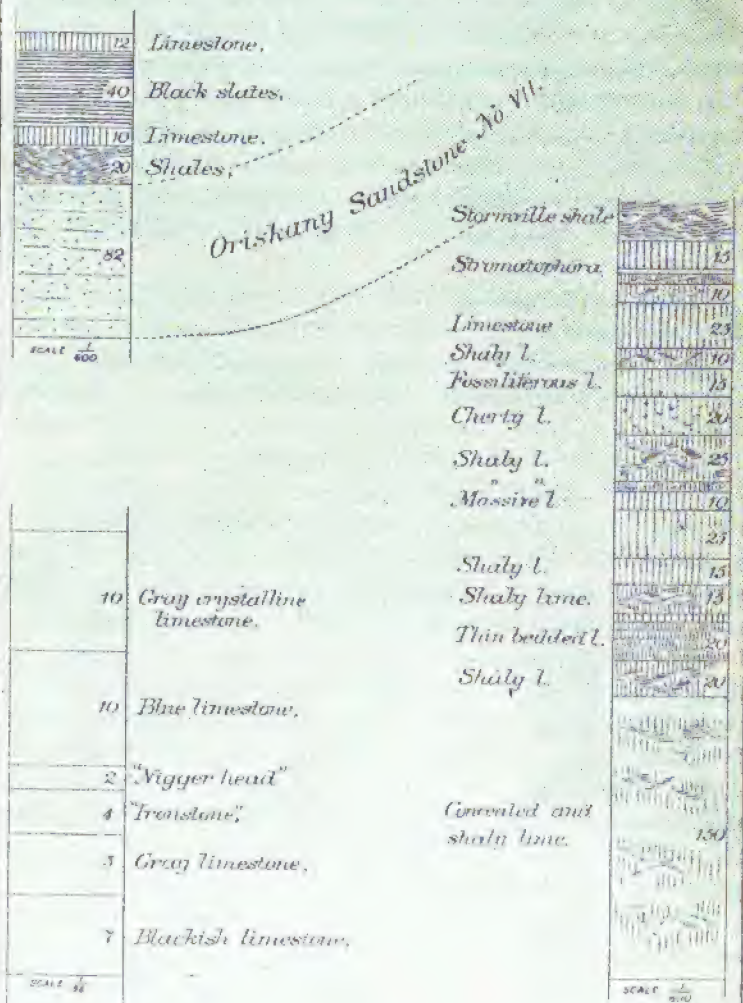 12 Limestone.
40 Black slates.
10 Limestone.
20 Shales,
82
SCALE 1/600
Oriskany Sandstone No. VII.
Stormville shale
Stromatophora. 15
10
Limestone 25
Shaly l. 10
Fossiliferous l. 15
Cherty l. 20
Shaly l. 25
" "
Massive l. 10
25
Shaly l. 15
Shaly lime. 15
Thin bedded l. 20
Shaly l. 20
Concealed and
shaly lime. 150
SCALE
10 Gray crystalline
limestone.
10 Blue limestone.
2 "Nigger head"
4 "Ironstone",
Gray limestone.
7 Blackish limestone.
SCALE